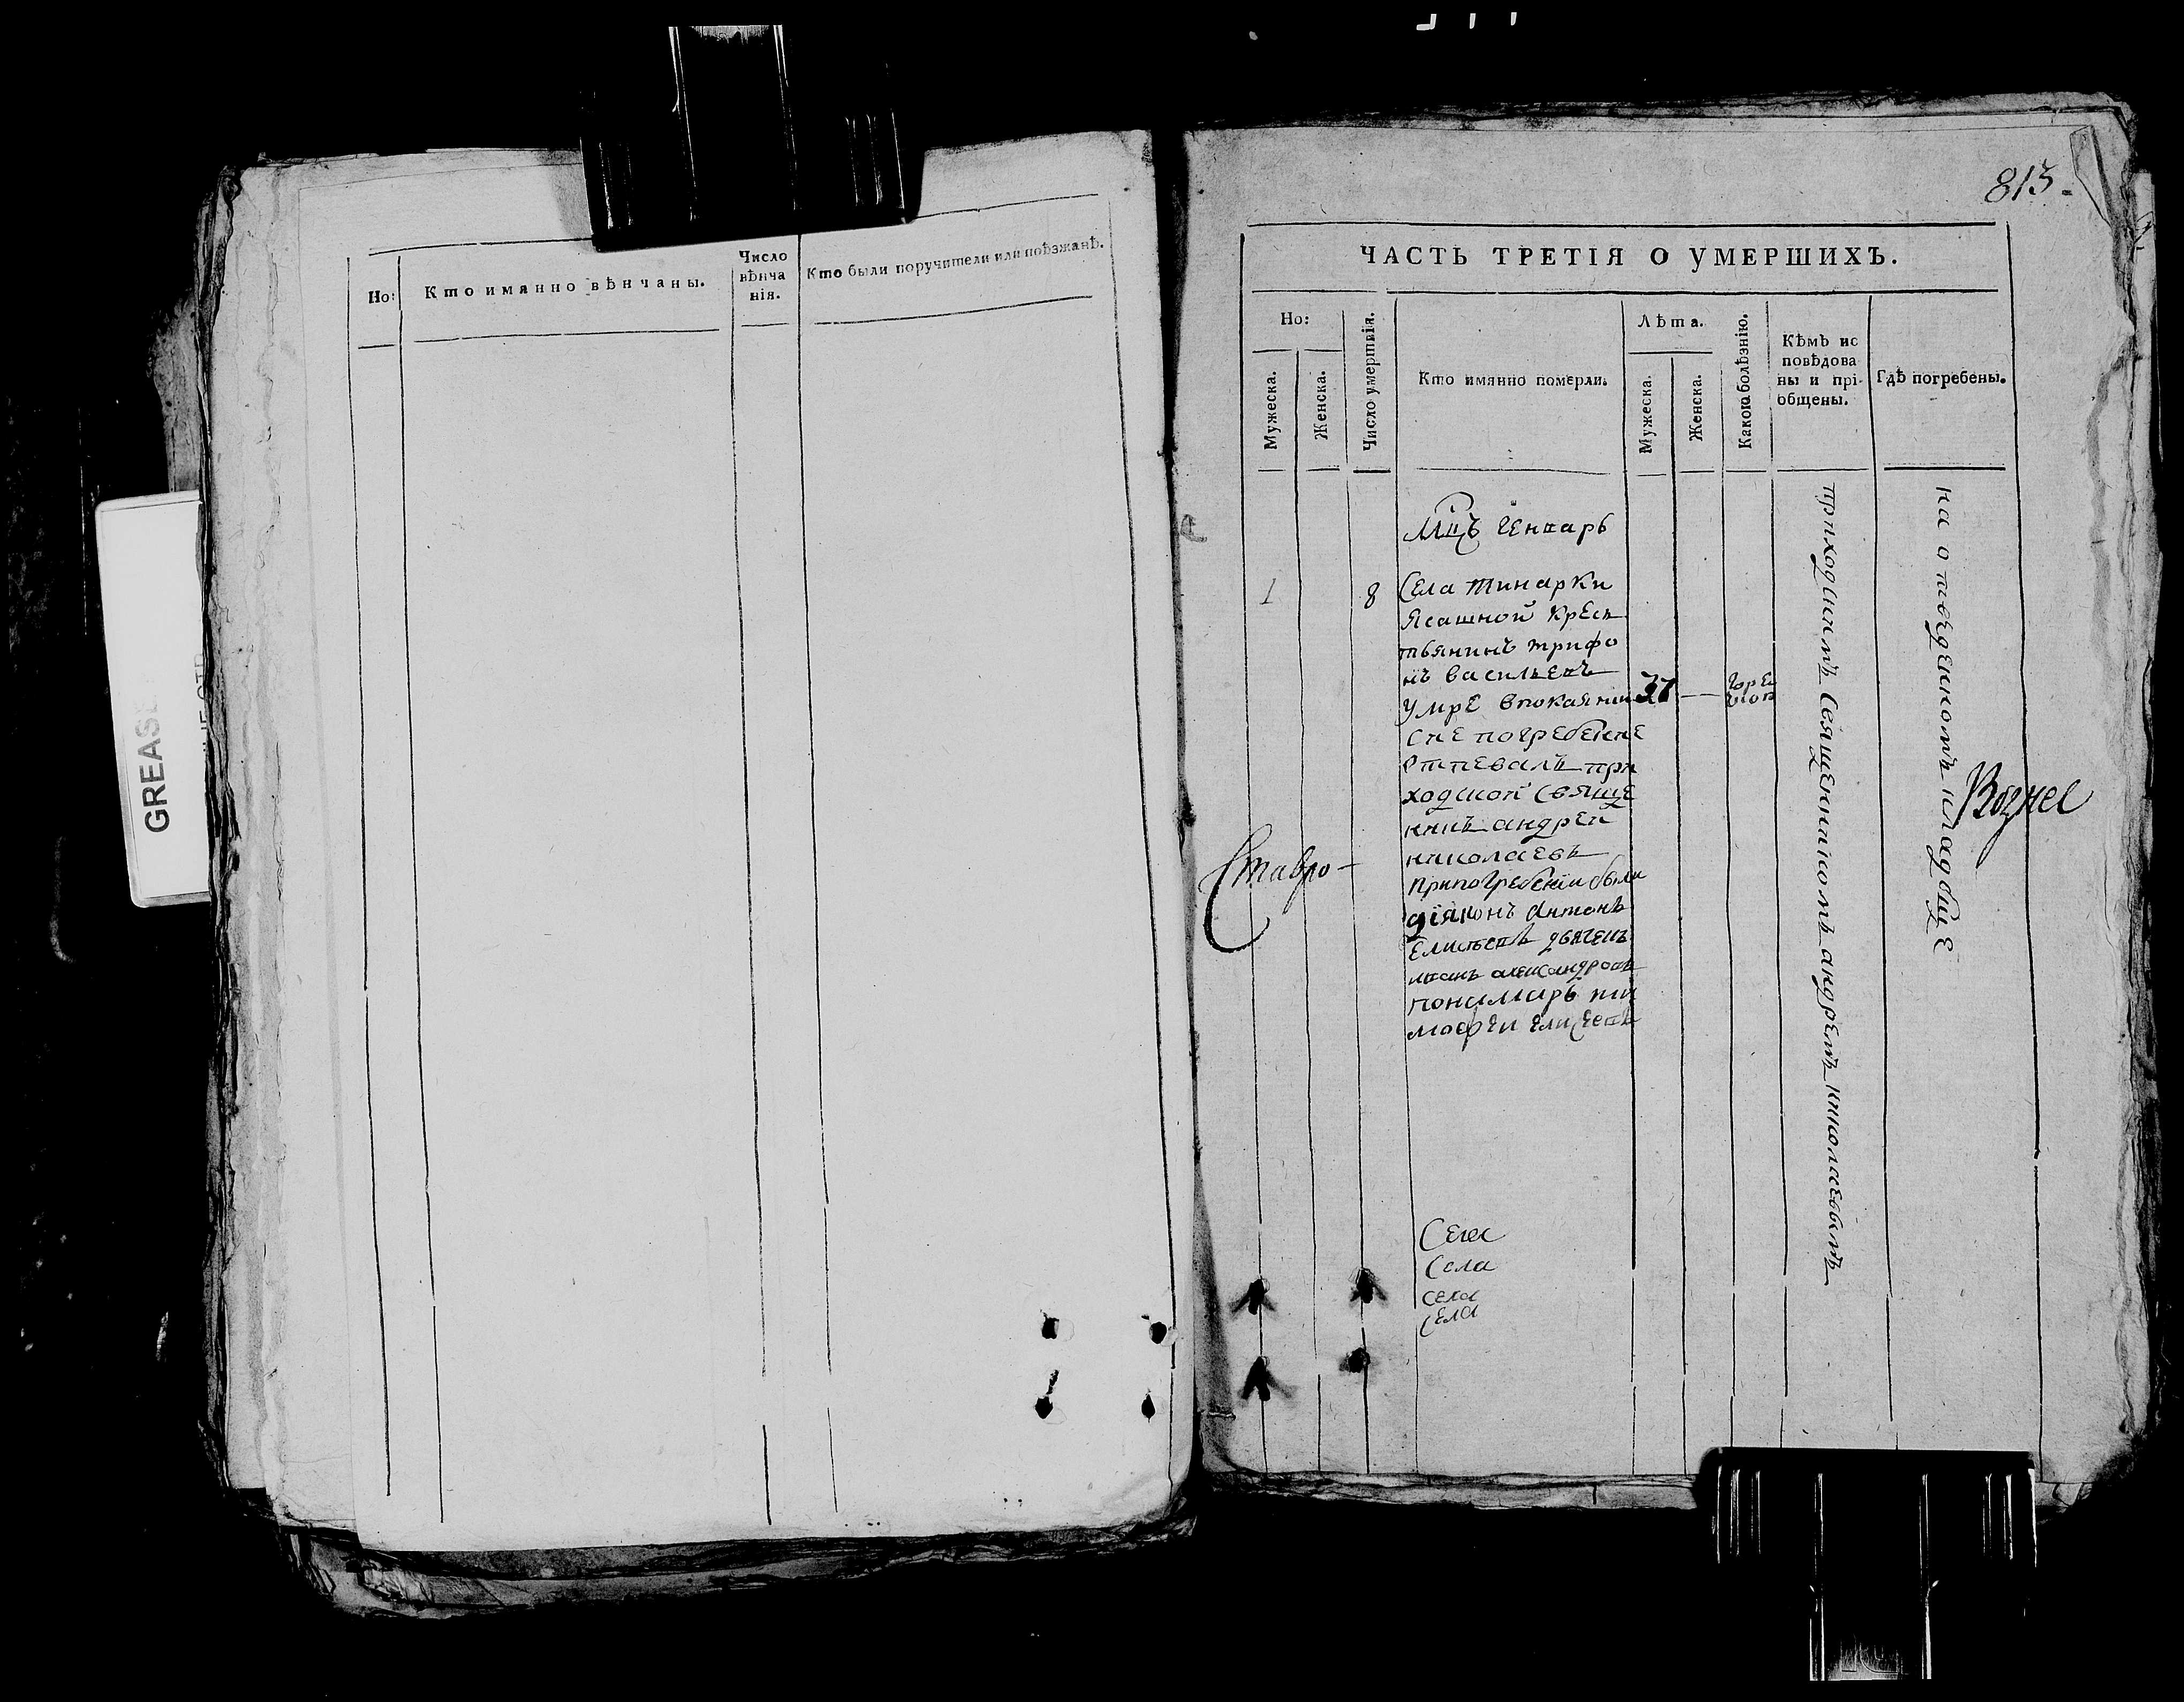 Но:
Кто имянно вѣнчаны.
Число
вѣнча
нія.
Кто были поручители или поѣзжанѣ.
GREASE
813.
ЧАСТЬ ТРЕТІЯ О УМЕРШИХЪ.
Но:
Мужеска.
Женска.
Число умертвія.
Кто имянно померли.
Лѣта.
Мужеска.
Женска.
Какою болѣзнію.
Кѣмъ ис
повѣдова
ны и прі-
общены.
Гдѣ погребены.
Мцъ генварь
1
8
Села тинарки
ясашной крес
тьянинъ трифо
нъ васильевъ
умре впокаянии
37
горе
чкою
сие погребение
отпевалъ при
ходской свяще
нникъ андрей
николаевъ
При погребении были
діяконъ Антонъ
Елисеевъ дьячекъ
иванъ александровъ
пономарь ти
мофеи елисеевъ
приходскимъ священникомъ андреемъ николаевымъ
на отведенномъ кладбище
Ставро-
Вознес
Села
Села
села
села